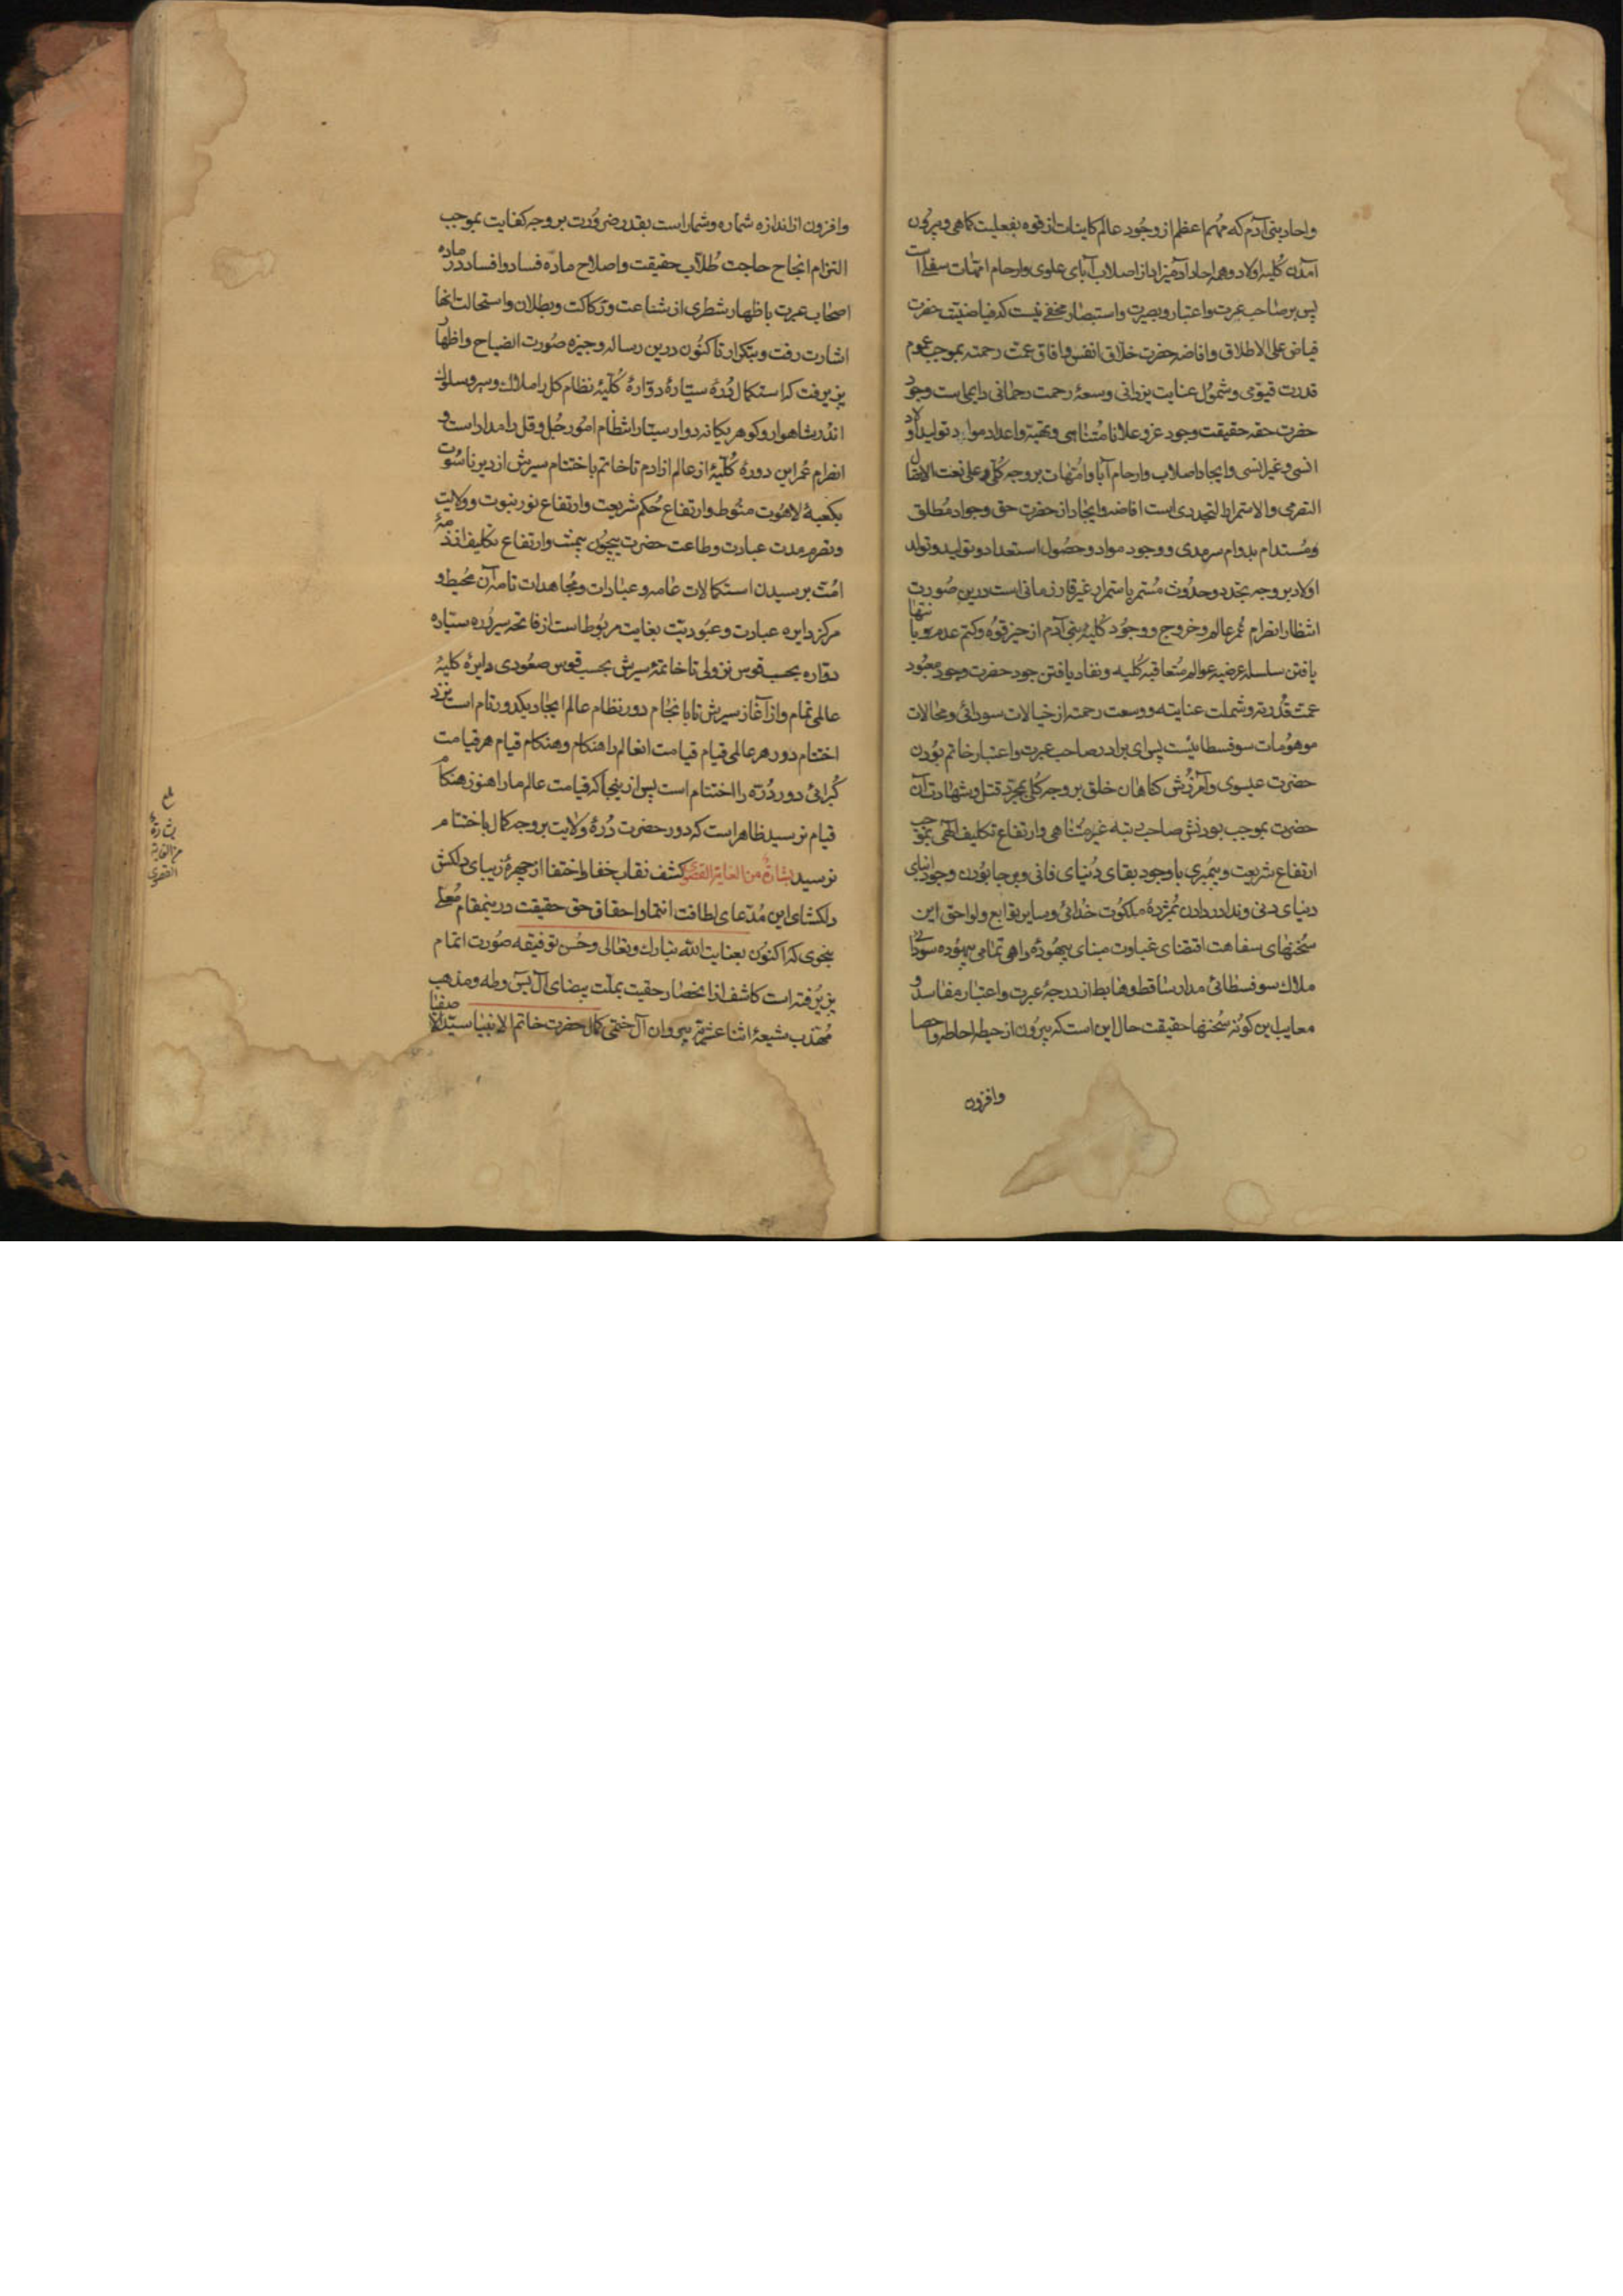 واحاد بنی آدم که مهم اعظم از وجود عالم کاینات از قوه بفعلیت کماهی و بیرون
آمدن کلیه اولاد و همه احاد آدمیزاد از اصلاب آبای علوی و ارحام امهات سفلی است
پس بر صاحب عبرت و اعتبار و بصیرت و استبصار مخفی نیست که فیاضیت حضرت
فیاض علی الاطلاق و افاضه حضرت خلاق انفس و افاق عمت رحمته بموجب عموم
قدرت قیومی و شمول عنایت یزدانی و سعهٔ رحمت رحمانی دایمی است وجود
حضرت حقه حقیقت وجود عز و علا نامتناهی و تهیئه و اعداد مواد تولید اولاد
انسی و غیر انسی و ایجاد اصلاب و ارحام آبا و امهات بر وجه کلی و علی نعت الاتصال
التصرمی و الاستمرار التجددی است افاضه و ایجاد از حضرت حق و جواد مطلق
و مستدام بدوام سرمدی و وجود مواد و حصول استعداد و تولید و تولد
اولاد بر وجه تجدد و حدوث مستمر باستمرار غیر قار زمانی است درین صورت
انتظار انصرام عمر عالم و خروج و وجود کلیه بنی آدم از حیز قوه و کتم عدم و بانتها
یافتن سلسله عرضیه عوالم متعاقبه کلیه و نفاد یافتن جود حضرت وجود معبود
عمت قدرته و شملت عنایته و وسعت رحمته از خیالات سودائی و محالات
موهومات سوفسطائیست پس ای برادر صاحب عبرت و اعتبار خاتم بودن
حضرت عیسوی و آمرزش کناهان خلق بر وجه کلی بمجرد قتل و شهادت آن
حضرت بموجب بودنش صاحب رتبه غیر متناهی و ارتفاع تکلیف الهی بموجب
ارتفاع شریعت و پیمبری با وجود بقای دنیای فانی و بر جا بودن وجود انبای
دنیای دنی و ندا در دادن بمژدهٔ ملکوت خدائی و سایر توابع و لواحق این
سخنهای سفاهت اقتضای غباوت مبنای بیهودهٔ واهی تمامی بیهوده سودائی
ملاک سوفسطائی مدار ساقط و هابط از درجهٔ عبرت و اعتبار مفاسد و
معایب این کونه سخنها حقیقت حال این است که بیرون از حیطه احاطه و احصا
وافزون
وافزون از اندازه شماره و شمار است بقدر ضرورت بر وجه کفایت بموجب
التزام انجاح حاجت طلاب حقیقت و اصلاح ماده فساد و افساد در ماده
اصحاب عبرت باظهار شطری از شناعت و رکاکت و بطلان و استحالت انها
اشارت رفت و بتکرار تا کنون درین رساله وجیزه صورت اتضاح و اظهار
پذیرفت که استکمال دره ستارهٔ دوارهٔ کلیهٔ نظام کل را ملاک و سیر و سلوک
اندر شاهوار و کوهر یکانه دوار سیار انتظام امور جل و قل را مدار است و
انصرام عمر این دورهٔ کلیهٔ از عالم از ادم تا خاتم باختتام سیرش از دیر ناسوت
بکعبهٔ لاهوت منوط و ارتفاع حکم شریعت و ارتفاع نور نبوت و ولایت
و تصرم مدت عبادت و طاعت حضرت بیچون بیمثل و ارتفاع تکلیف از ذمهٔ
امت برسیدن استکمالات عامه و عبادات و مجاهدات تامه آن محیط و
مرکز دایره عبادت و عبودیت بغایت مربوط است از فاتحه سیر دره ستاره
دواره بحسب قوس نزولی تا خاتمهٔ سیرش بحسب قوس صعودی دایرهٔ کلیهٔ
عالمی تمام و از آغاز سیرش تا بانجام دور نظام عالم ایجاد یکدور تمام است نزد
اختتام دور هر عالمی قیام قیامت انعالم را هنکام و هنکام قیام هر قیامت
کبرائی دور دره را اختتام است پس از ینجا که قیامت عالم ما را هنوز هنکام
قیام نرسید ظاهر است که دور حضرت درهٔ ولایت بر وجه کمال باختتام
نرسید بشارة من الغایة القصوی کشف نقاب خفا و اختفا از چهرهٔ زیبای دلکش
دلکشای این مدعای لطافت انتما و احقاق حق حقیقت درینمقام معلی
بنحوی که اکنون بعنایت الله تبارک و تعالی و حسن توفیقه صورت اتمام
پذیرفته است کاشف از انحصار حقیت بملت بیضای آل یس و طه و مذهب
مهذب شیعهٔ اثنا عشریه پیروان آل ختمی کمال حضرت خاتم الانبیا سید الاصفیا
بشارة
من الغایة
القصوی